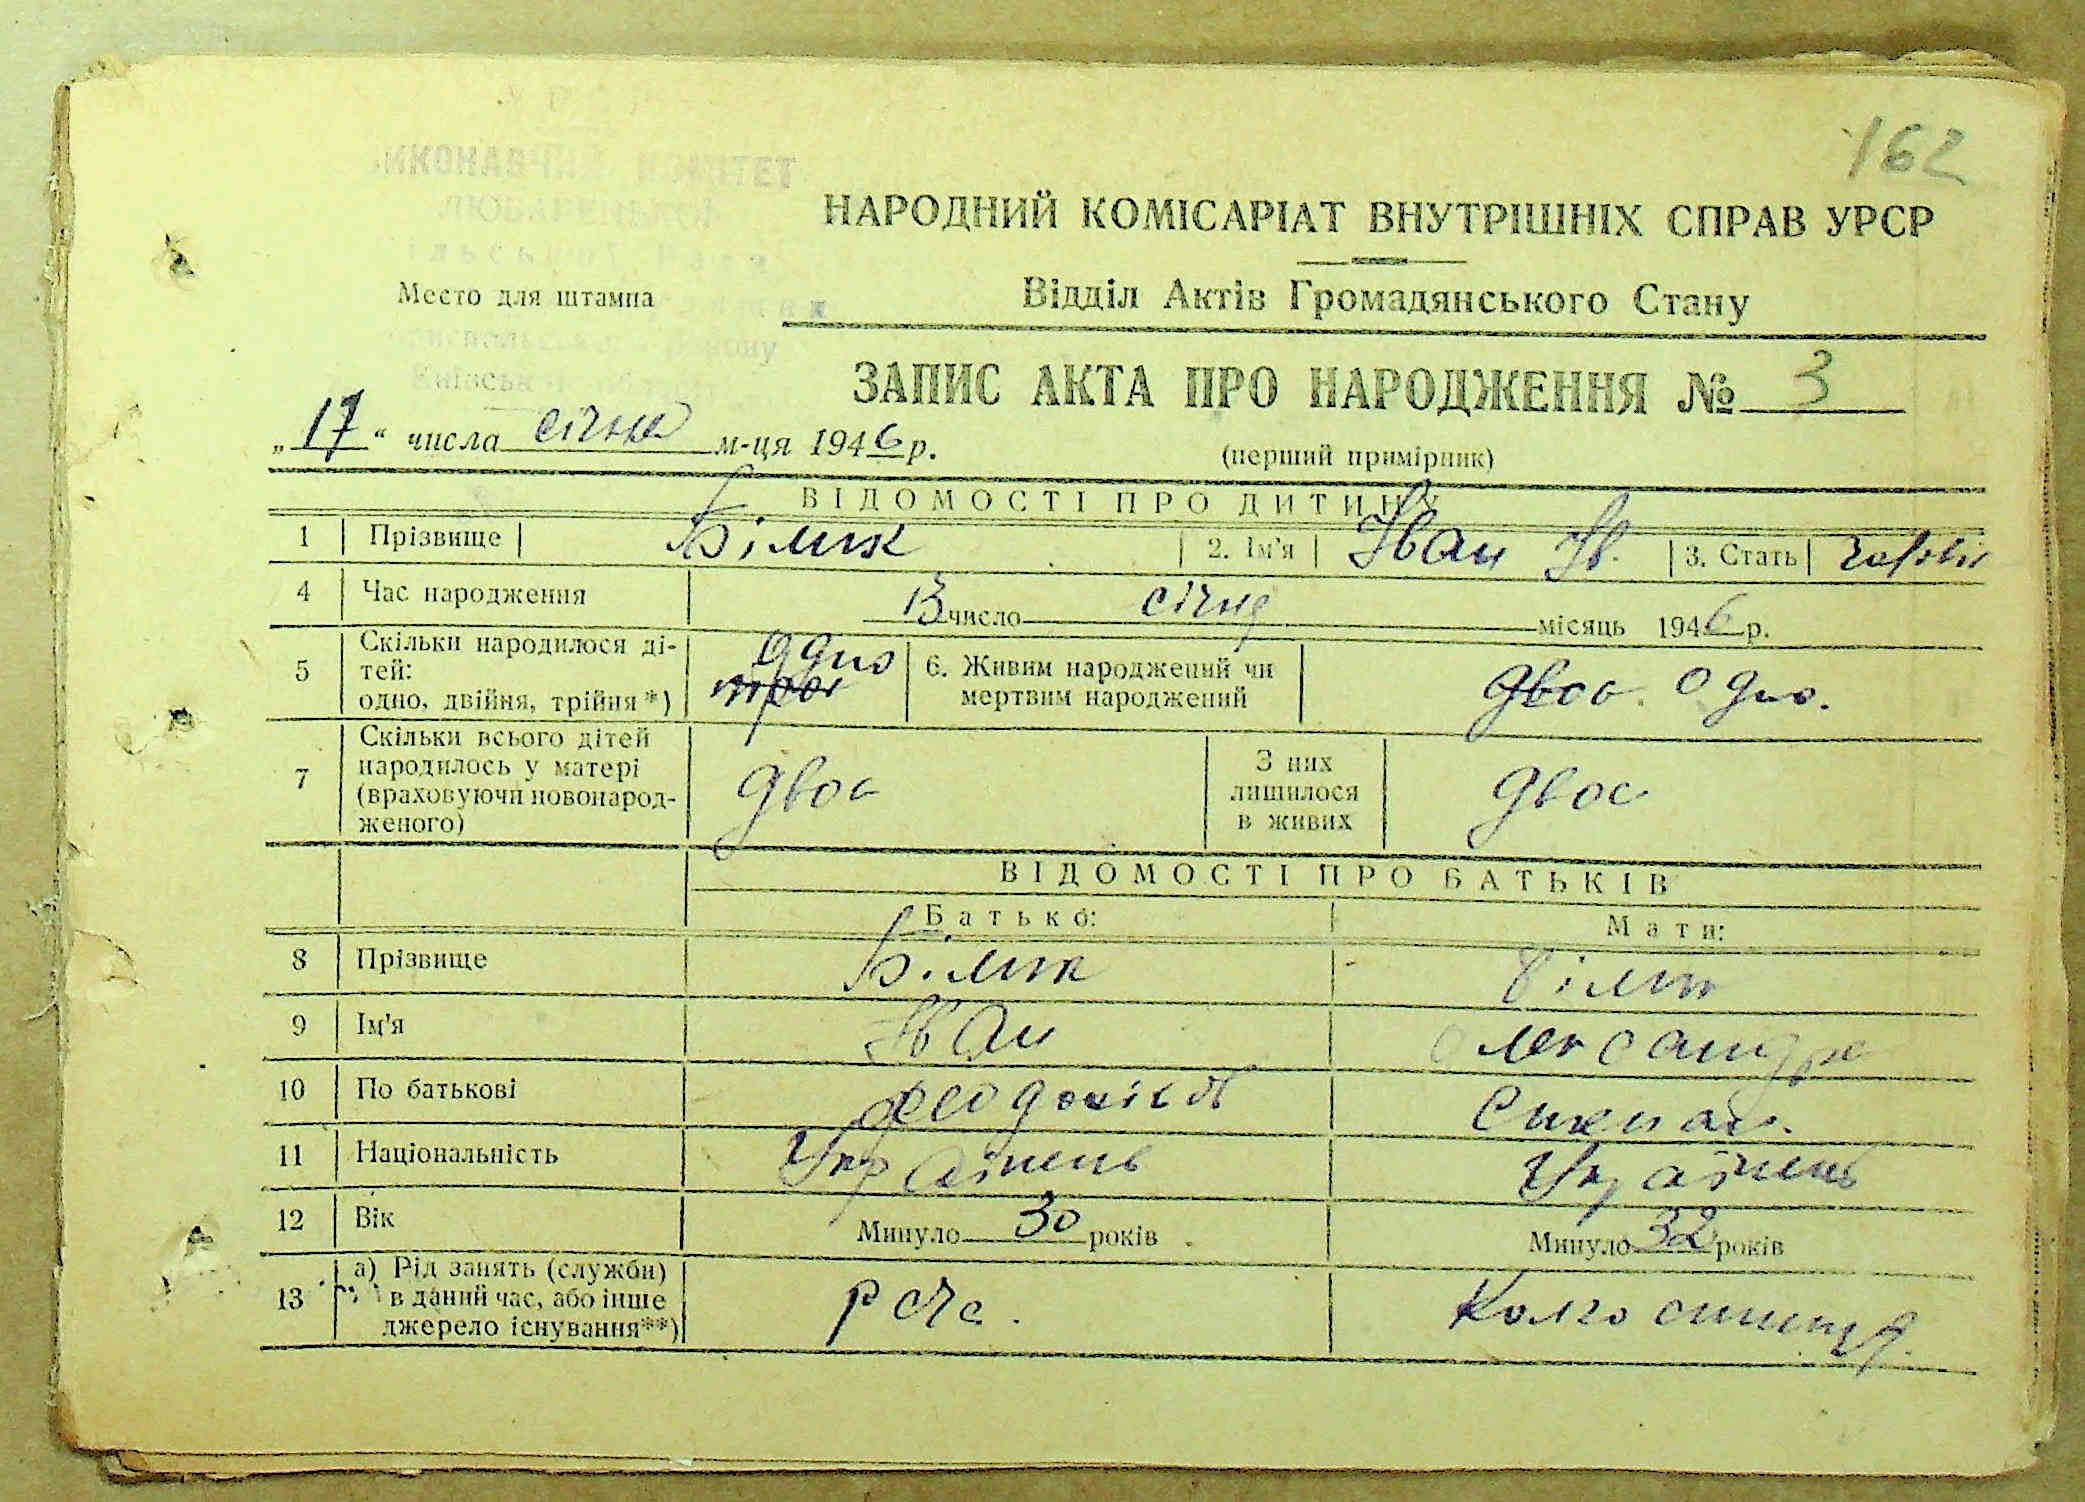 162
ВИКОНАВЧИЙ КОМІТЕТ
НАРОДНИЙ КОМІСАРІАТ ВНУТРІШНІХ СПРАВ УРСР
Место для штампа
Відділ Актів Громадянського Стану
ЗАПИС АКТА ПРО НАРОДЖЕННЯ № 3
„17“ числа січня м-ця 1946 р.
(перший примірник)
ВІДОМОСТІ ПРО ДИТИНУ
1 Прізвище Білик 2. Ім'я Іван Ів. 3. Стать
4 Час народження 13 число січня місяць 1946 р.
5 Скільки народилося ді-
тей:
одно, двійня, трійня*) одно
троє
6. Живим народжений чи
мертвим народжений двоє одно.
7 Скільки всього дітей
народилось у матері
(враховуючи новонарод-
женого) двоє
З них
лишилося
в живих двоє
ВІДОМОСТІ ПРО БАТЬКІВ
Батько: Мати:
8 Прізвище Білик Білик
9 Ім'я Іван Олександра
10 По батькові
11 Національність Українець Українець
12 Вік Минуло 30 років Минуло 32 років
13 а) Рід занять (служби)
в даний час, або інше
джерело існування**)